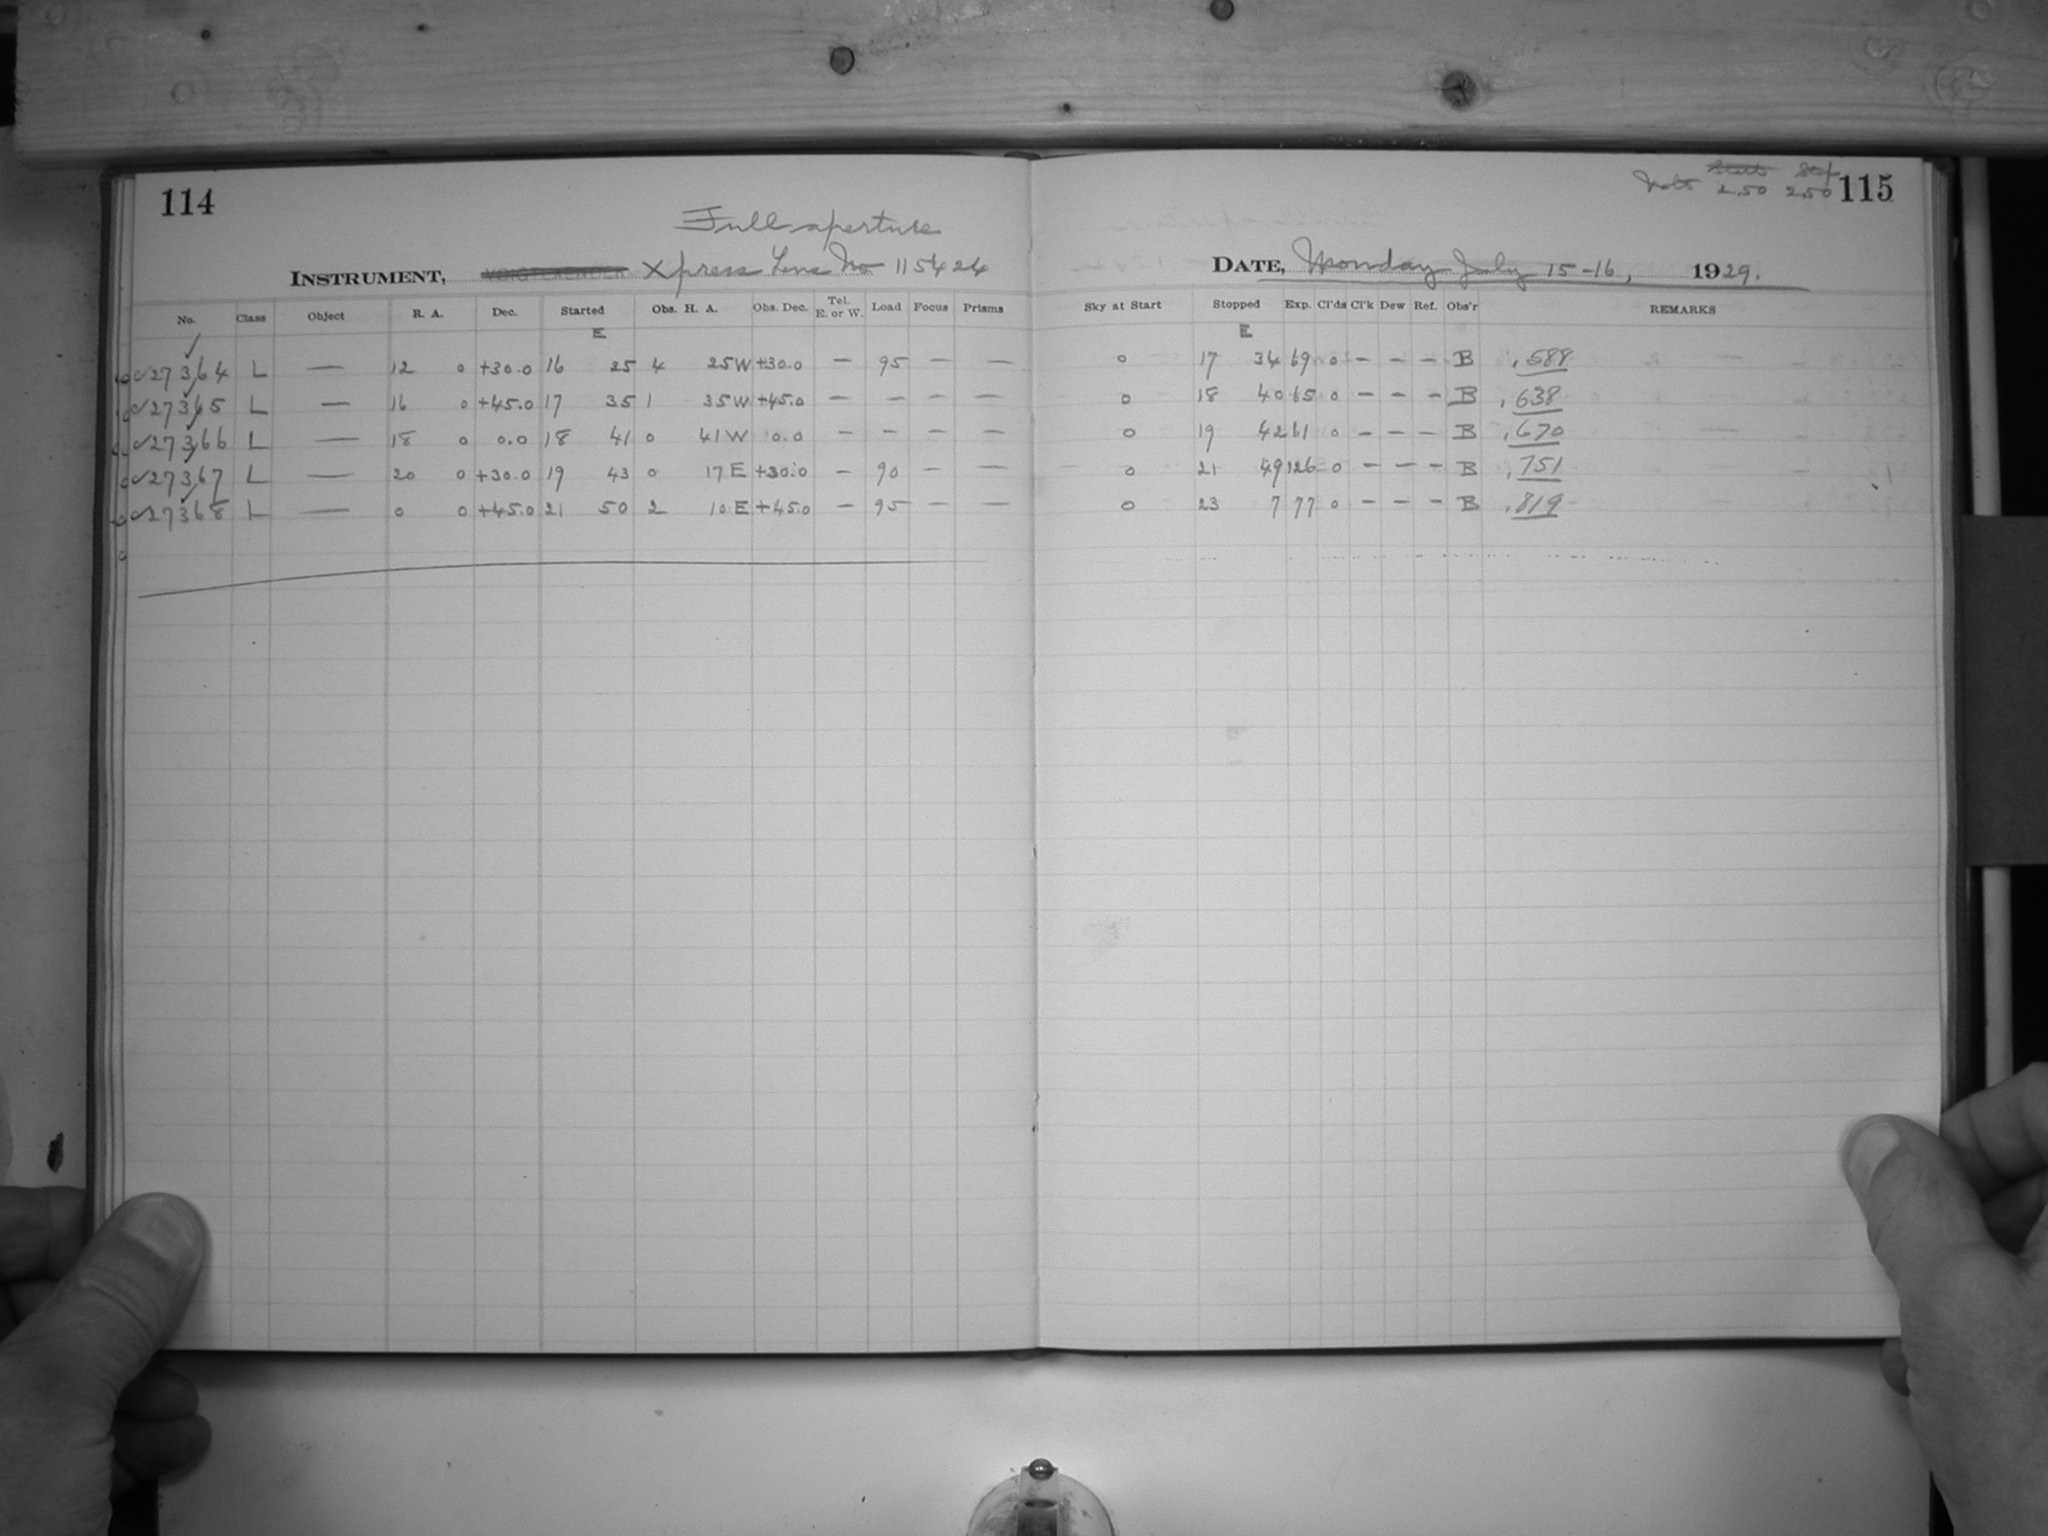 114
Full aperture
INSTRUMENT, VOIGTLAENDER Xpress Lens No 115424
No. Class Object R. A. Dec. Started Obs. H. A. Obs. Dec. Tel. E. or W. Load Focus Prisms
E
27364 L — 12 0 +30.0 16 25 4 25 W +30.0 — 95 — —
27365 L — 16 0 +45.0 17 35 1 35 W +45.0 — — — —
27366 L — 18 0 0.0 18 41 0 41 W 0.0 — — — —
27367 L — 20 0 +30.0 19 43 0 17 E +30.0 — 90 — —
27368 L — 0 0 +45.0 21 50 2 10 E +45.0 — 95 — —
Start Stop
Volts 2.50 2.50 115
DATE, Monday July 15-16, 1929.
Sky at Start Stopped Exp. Cl'ds Cl'k Dew Ref. Obs'r REMARKS
E
0 17 34 69 0 — — — B .588
0 18 40 65 0 — — — B .638
0 19 42 61 0 — — — B .670
0 21 49 126 0 — — — B .751
0 23 7 77 0 — — — B .819